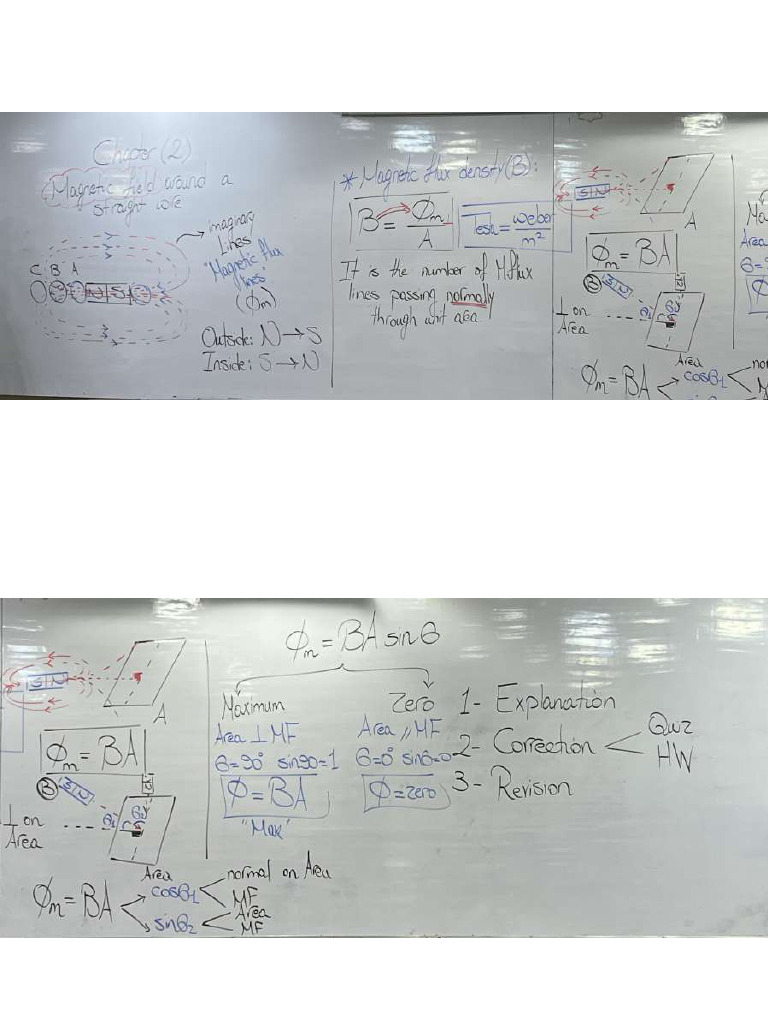 Chapter (2)
Magnetic field around a
straight wire
imaginary
Lines
"Magnetic flux
lines
(ϕm)
C B A
N S
Outside: N → S
Inside: S → N
* Magnetic flux density (B):
B = ϕm / A
Tesla = weber / m²
It is the number of M.flux
lines passing normally
through unit area
S N
A
ϕm = BA
B
S N
⊥ on
Area
θ1
θ2
Area
ϕm = BA
cosθ1
Area
θ=
S N
A
ϕm = BA
B
S N
⊥ on
Area
θ1
θ2
Area
ϕm = BA
cosθ1
normal on Area
MF
sinθ2
Area
MF
ϕm = BA sin θ
Maximum
Area ⊥ MF
θ=90° sin90=1
ϕ = BA
"Max"
Zero
Area // MF
θ=0° sinθ=0
ϕ = zero
1- Explanation
2- Correction
Quiz
HW
3- Revision